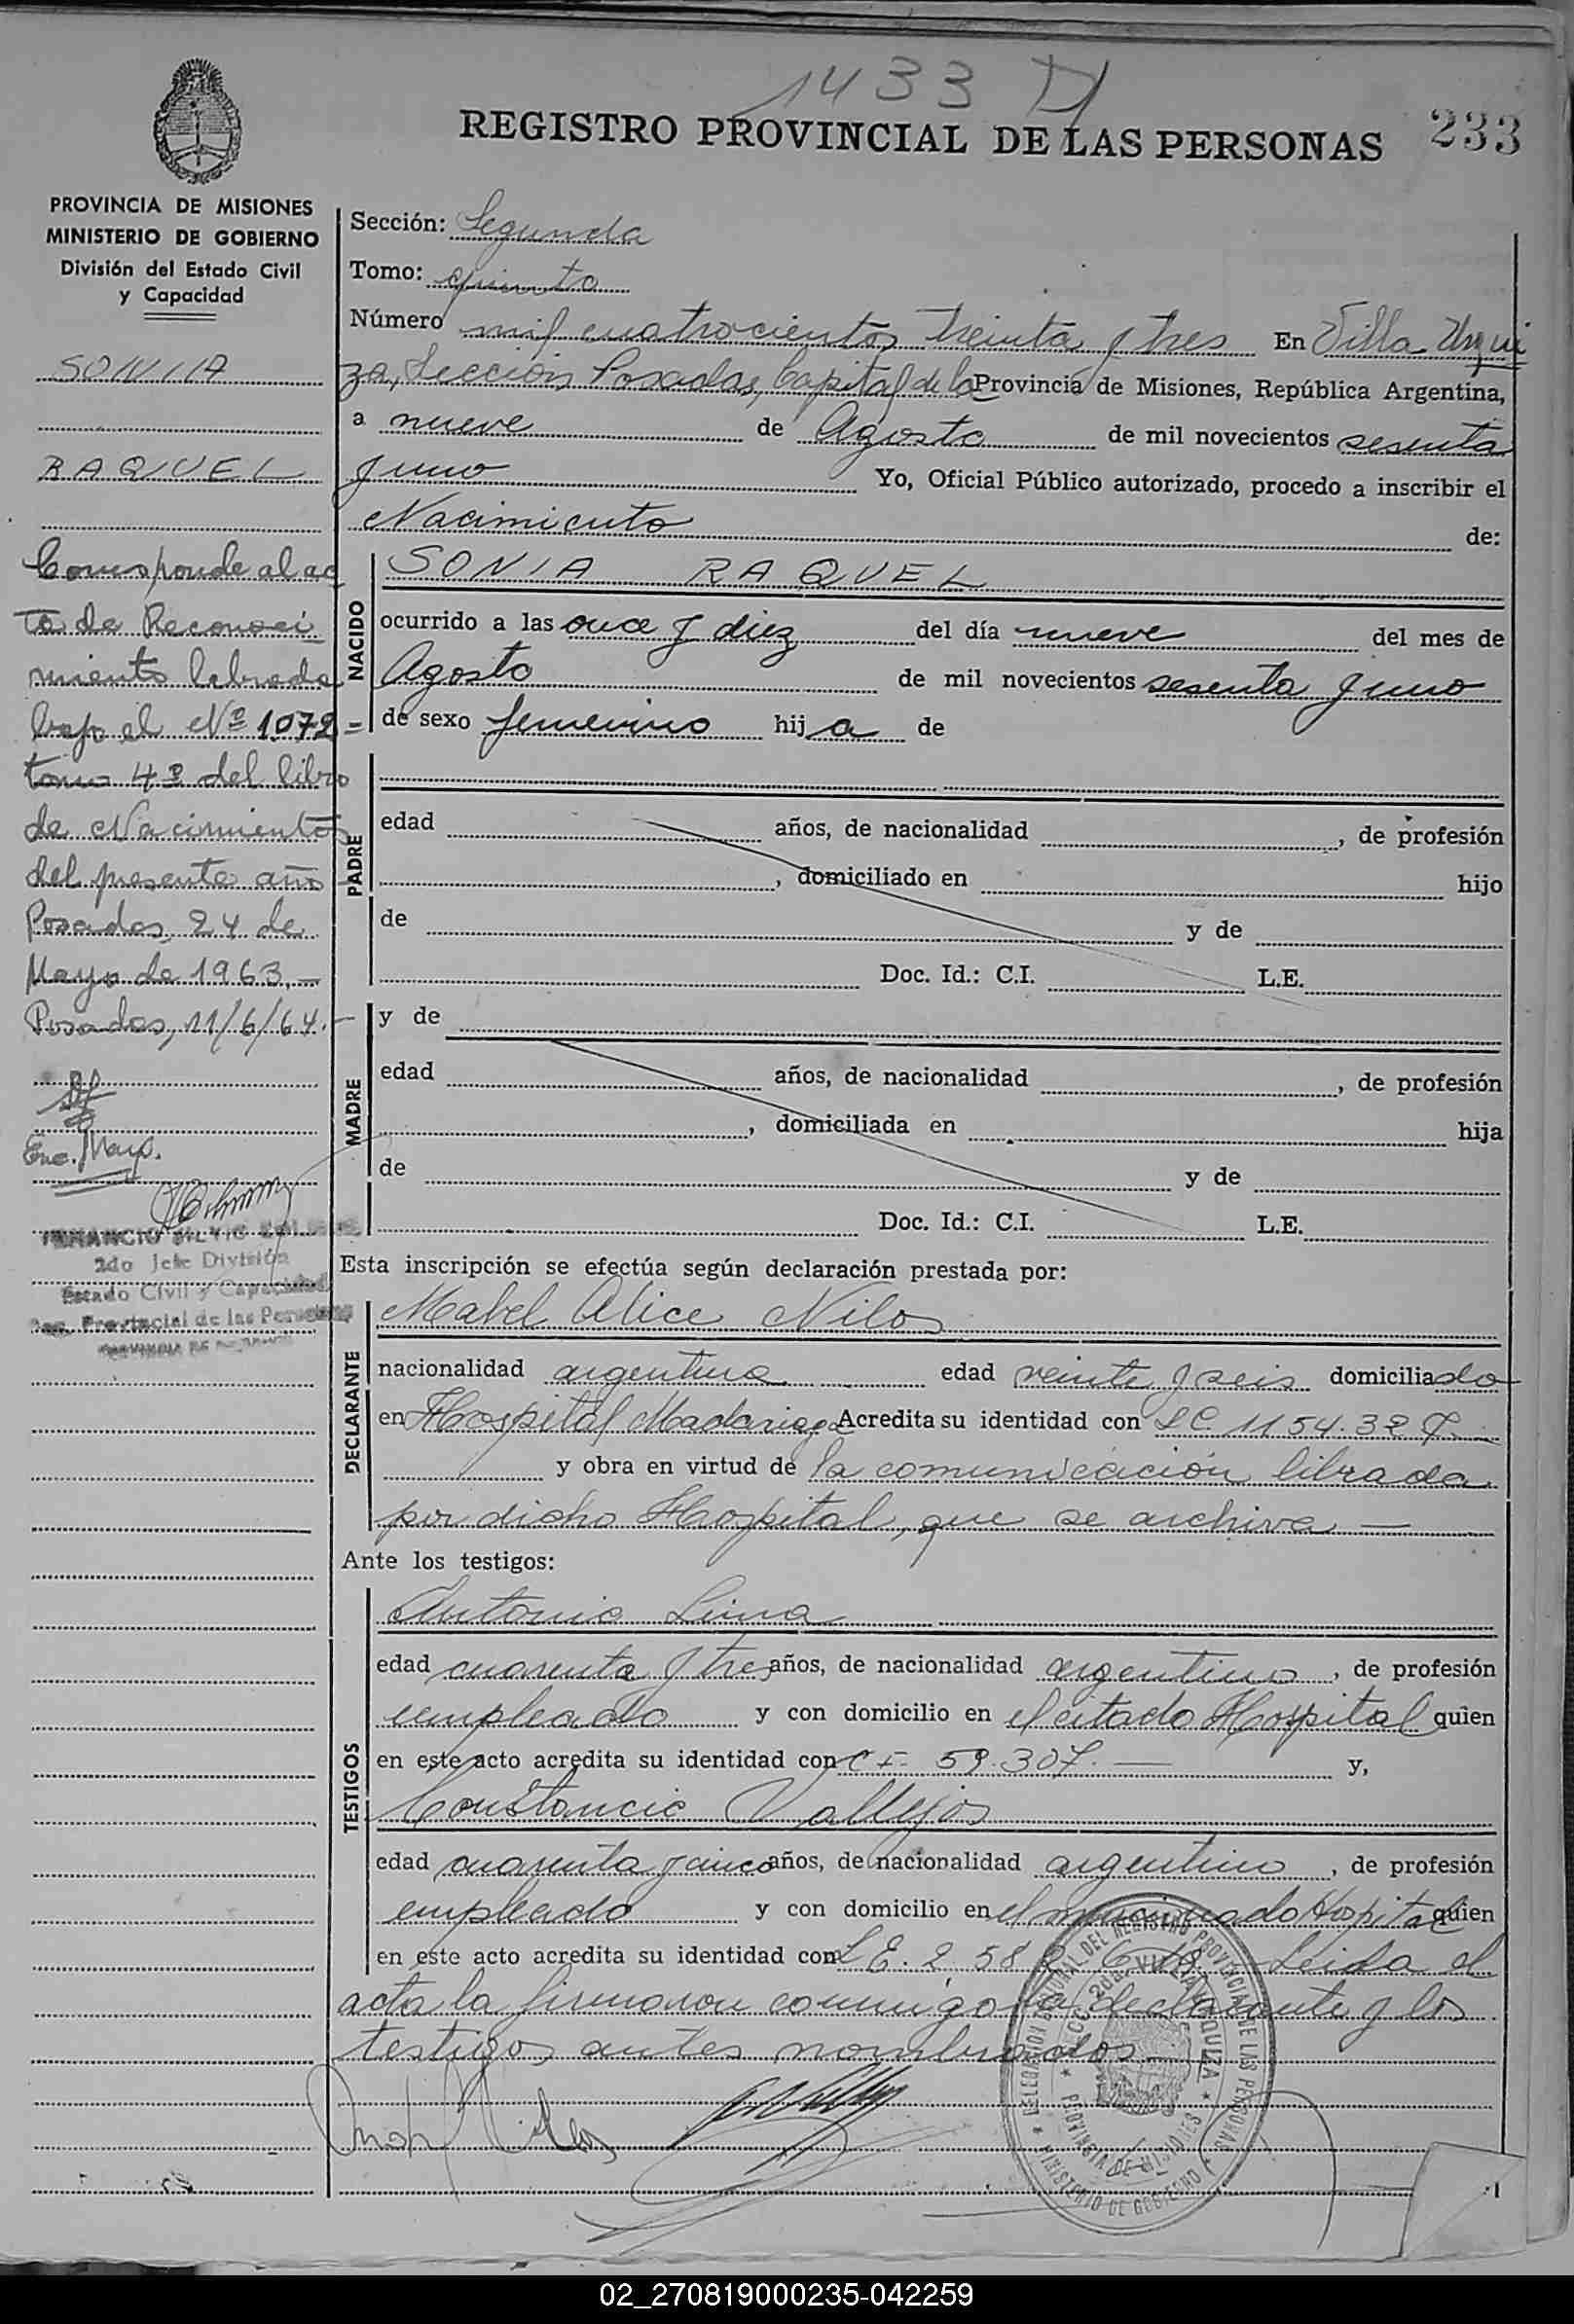 1433
REGISTRO PROVINCIAL DE LAS PERSONAS
233
PROVINCIA DE MISIONES
MINISTERIO DE GOBIERNO
División del Estado Civil
y Capacidad
SONIA
RAQUEL
Corresponde al ac
to de Reconoci
miento labrado
bajo el Nº 1.072 =
tomo 4º del libro
de Nacimientos
del presente año
Posadas, 24 de
Mayo de 1963.-
Posadas, 11/6/64.-
Enc. Marg.
2do Jefe División
Estado Civil y Capacidad
Reg. Provincial de las Personas
Sección: Segunda
Tomo: quinto
Número mil cuatrocientos treinta y tres En Villa Urqui
za, Sección Posadas, Capital de la Provincia de Misiones, República Argentina,
a nueve de Agosto de mil novecientos sesenta
y uno Yo, Oficial Público autorizado, procedo a inscribir el
Nacimiento de:
NACIDO
SONIA RAQUEL
ocurrido a las once y diez del día nueve del mes de
Agosto de mil novecientos sesenta y uno
de sexo femenino hija de
PADRE
edad años, de nacionalidad , de profesión
, domiciliado en hijo
de y de
Doc. Id.: C.I. L.E.
MADRE
y de
edad años, de nacionalidad , de profesión
, domiciliada en hija
de y de
Doc. Id.: C.I. L.E.
Esta inscripción se efectúa según declaración prestada por:
DECLARANTE
Mabel Alice Nilos
nacionalidad argentina edad veinte y seis domiciliado
en Hospital Madariaga Acredita su identidad con LC. 1154.327.
y obra en virtud de la comunicación librada
por dicho Hospital, que se archiva —
Ante los testigos:
TESTIGOS
Antonio Lima
edad cuarenta y tres años, de nacionalidad argentino, de profesión
empleado y con domicilio en el citado Hospital quien
en este acto acredita su identidad con C I. 59.307. — y,
Constancio Vallejos
edad cuarenta y cinco años, de nacionalidad argentino, de profesión
empleado y con domicilio en el mencionado Hospital quien
en este acto acredita su identidad con L E. 2.58 Leida el
acta la firmaron conmigo la declarante y los
testigos antes nombrados.
DELEGACION REGIONAL DEL REGISTRO PROVINCIAL DE LAS PERSONAS
MINISTERIO DE GOBIERNO
PROVINCIA DE MISIONES
02_270819000235-042259